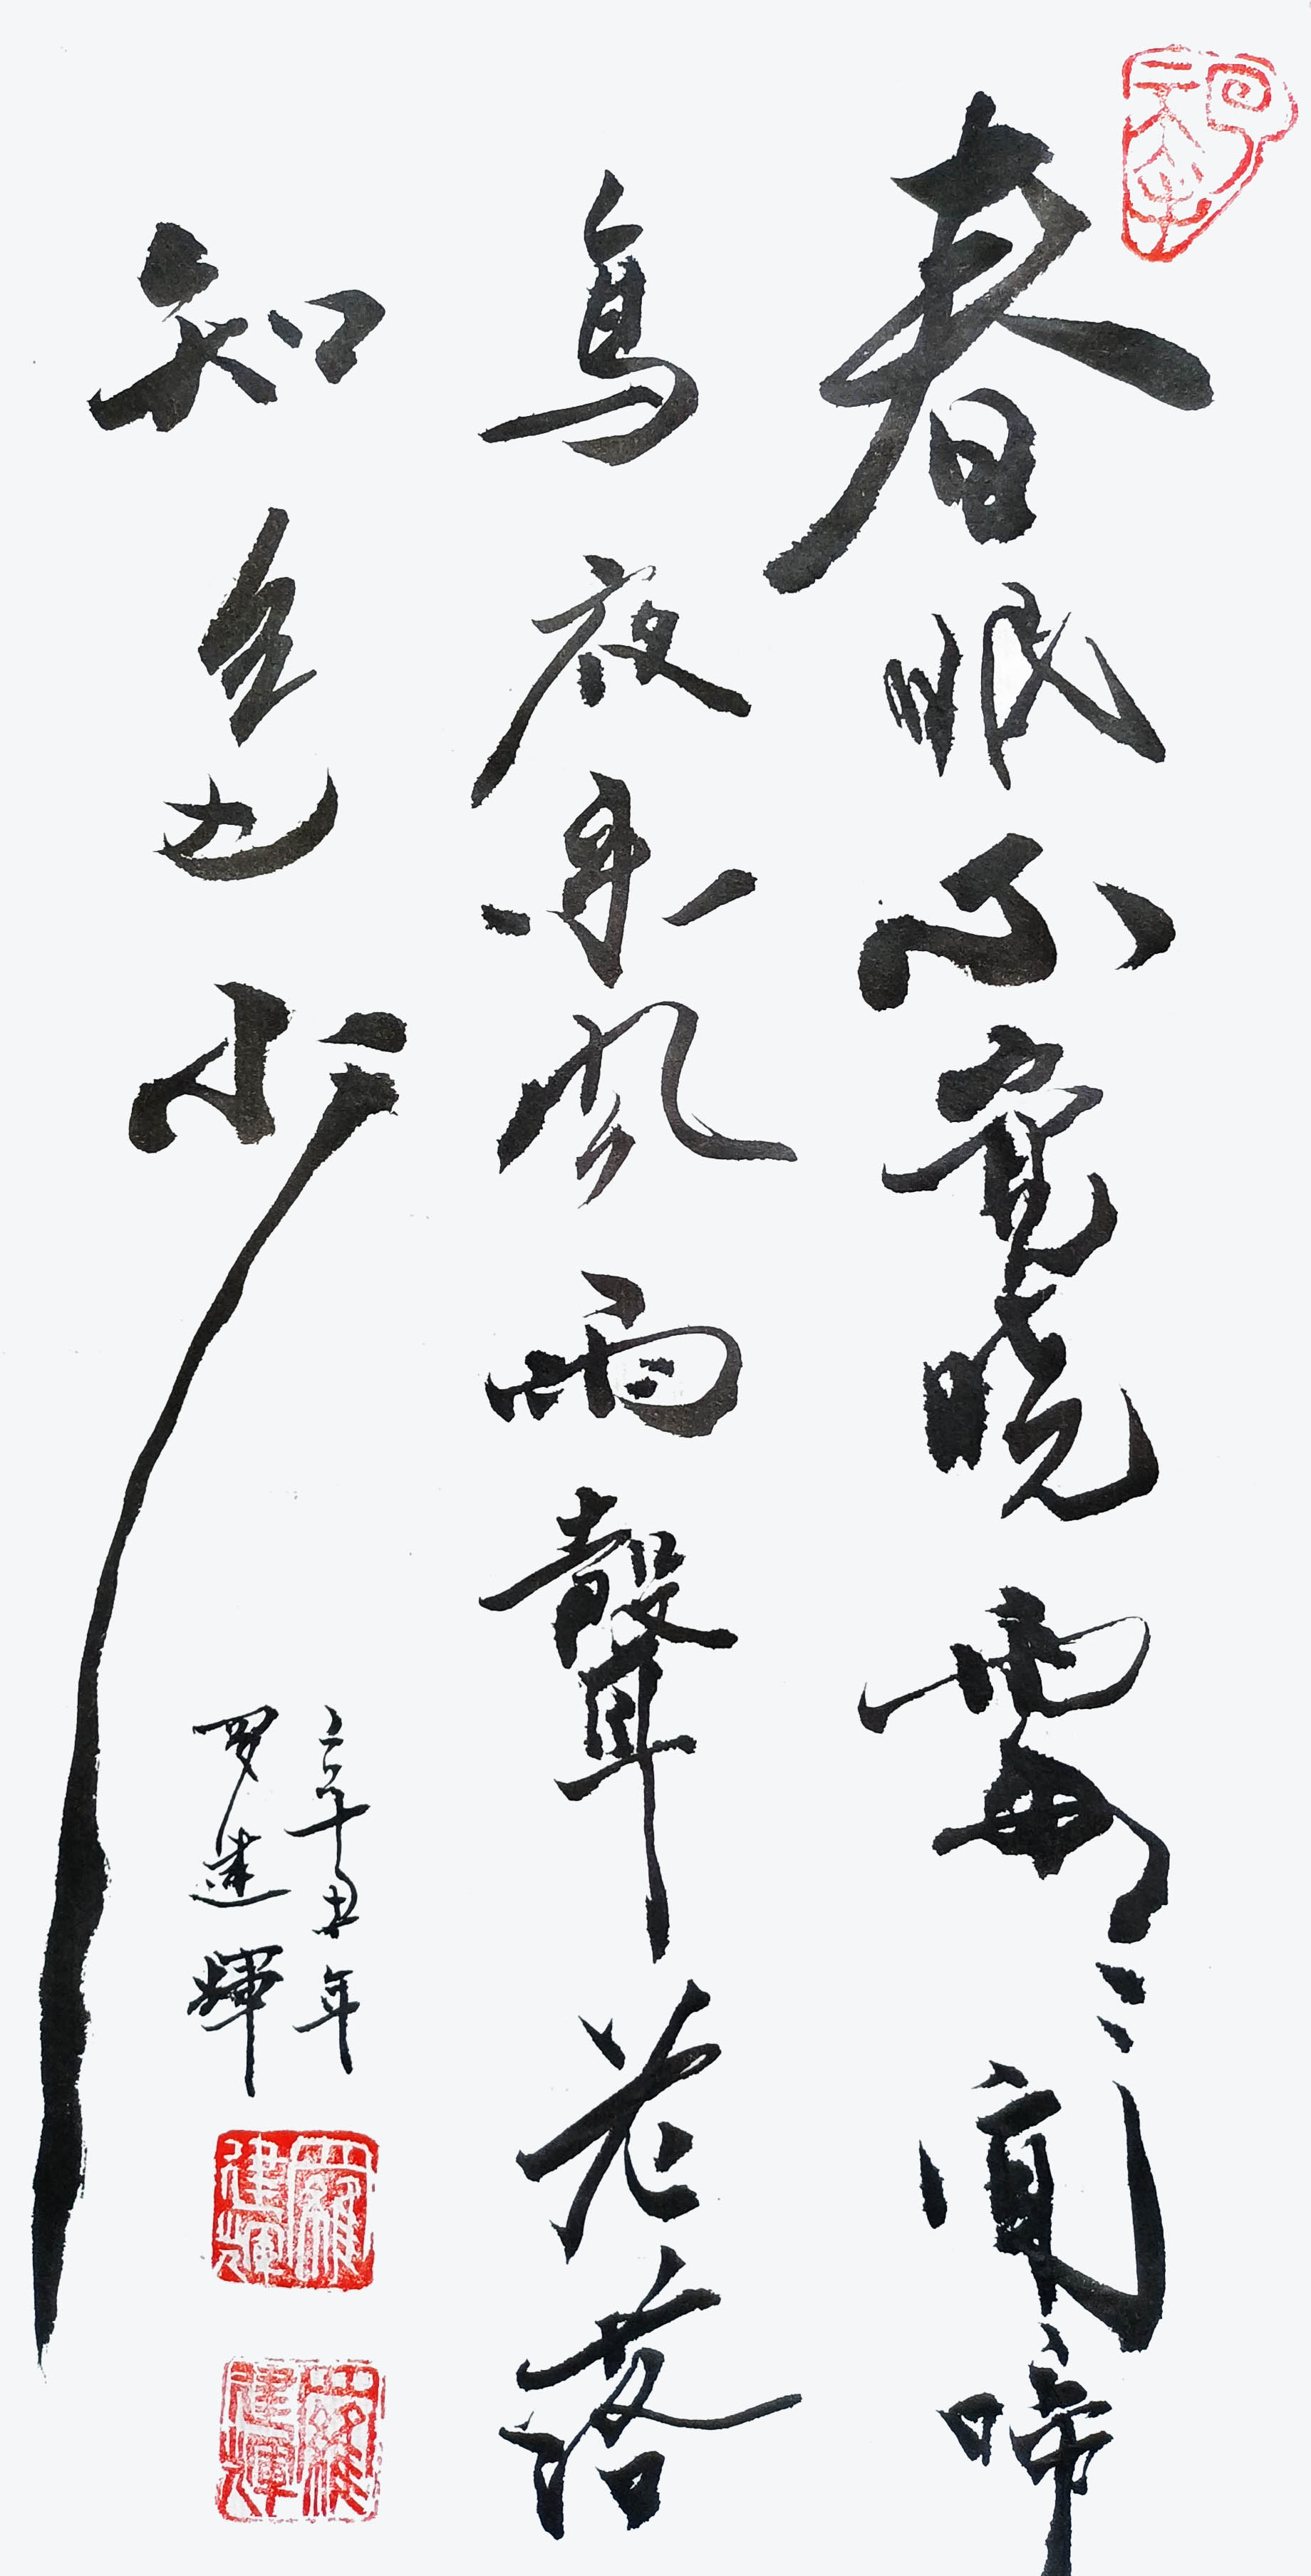 春眠不覺曉處〻聞啼
鳥夜来風雨聲花落
知多少
辛丑年
罗建輝
羅建輝
羅建輝